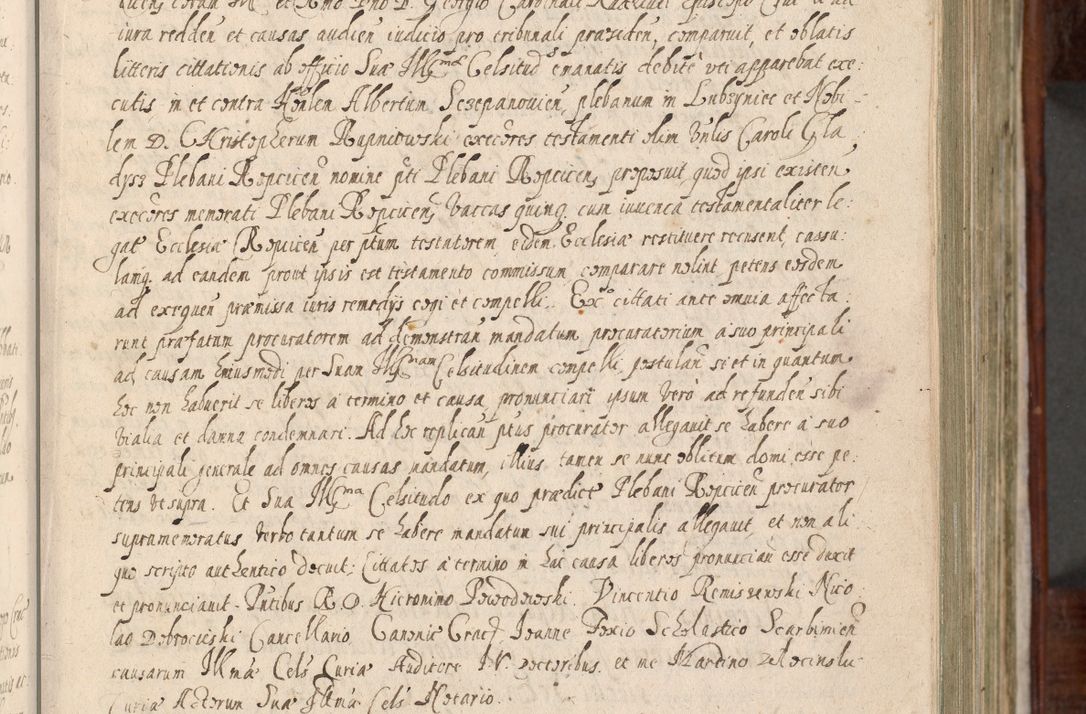 iura redden et causas audien iudicio pro tribunali præsiden, comparuit, et oblatis
litteris cittationis ab officio Suæ Illmæ Celsitud emanatis debite vti apparebat exe:
cutis in et contra Hoñlem Albertum Sczepanouien, plebanum in Lubzyniec et Nobi-
lem D. Christopherum Rapniowski exectres testamenti olim Vnlis Caroli Gla
dysz Plebani Ropcicen nomine ptti Plebani Ropcicen, proposuit, quod ipsi existen
exectres memorati Plebani Ropcicen, vaccas quinq. cum iuuenca testamentaliter le:
gat Ecclesiæ Ropcicen per ptum testatorem eidem Ecclesiæ restituere recusent, cassu:
lamq. ad eandem prout ipsis est testamento commissum comparare nolint, petens eosdem
ad exequen præmissa iuris remedijs cogi et compelli. Ex quo cittati ante omnia affecta:
runt præfatum procuratorem ad demonstran mandatum procuratorium a suo principali
ad causam huiusmodi per Suam Illmam Celsitudinem compelli, postulan si et in quantum
hoc non habuerit se liberos a termino et causa pronunciari ipsum vero ad refunden sibi
vialia et damna condemnari. Ad hoc replican ptus procurator allegauit se habere a suo
principali generale ad omnes causas mandatum, illius tamen se nunc oblitum domi esse pe:
tens vt supra. Et Sua Illma Celsitudo ex quo prædict Plebani Ropcicen procurator
supramemoratus verbo tantum se habere mandatum sui principalis allegauit, et non ali
quo scripto authentico docuit; Cittatos a termino in hac causa liberos pronuncian esse duxit
et pronunciauit. Pntibus R. D. Hieronimo Powodowski. Vincentio Remiszewski Nico
lao Dobrocieski Cancellario Canonic Crac, Ioanne Foxio Scholastico Scarbimien
causarum Illmæ Cels Curiæ Auditore I.V. doctoribus. et me Martino
Curiæ Actorum Suæ Illmæ Cels Notario.